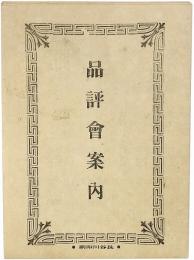 品評會案内